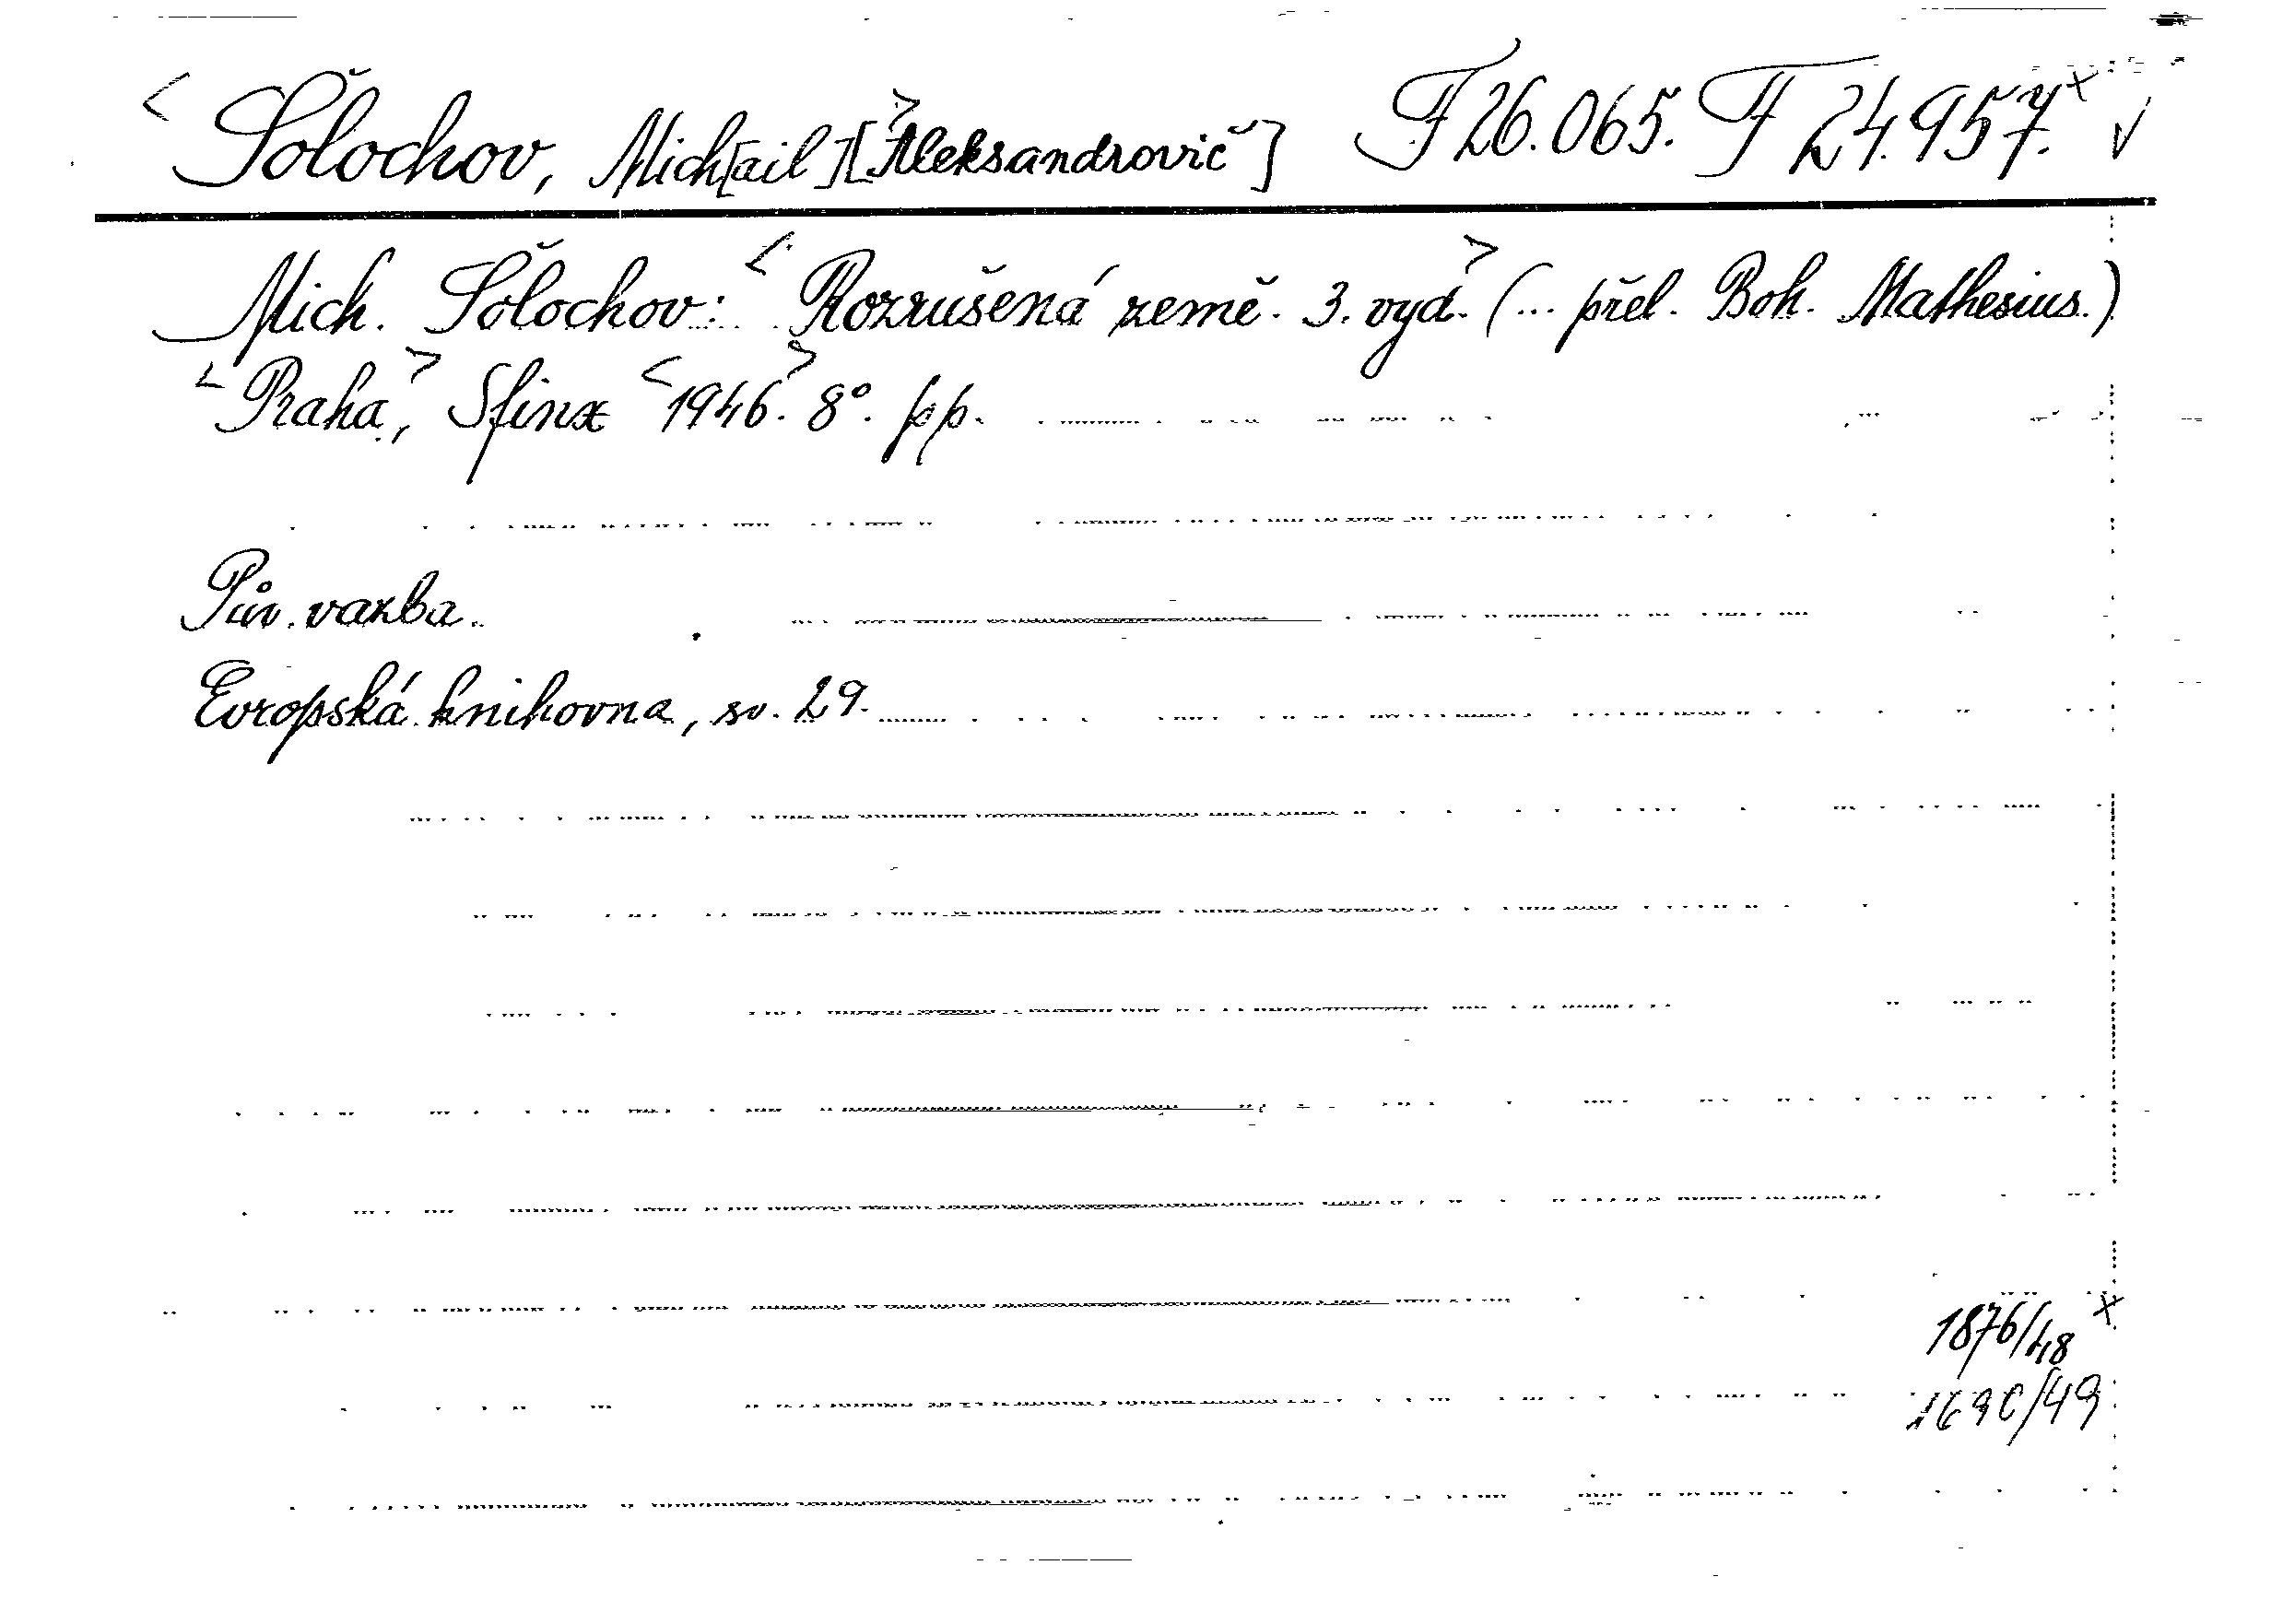 < Šolochov, Mich[ail][Aleksandrovič] > F 26.065. F 24.957.x √
Mich. Šolochov: < Rozrušená země. 3. vyd. > (... přel. Boh. Mathesius.)
< Praha, > Sfinx < 1946. > 8°. pp.
Pův. vazba.
Evropská knihovna, sv. 29.
1876/48 x
1690/49